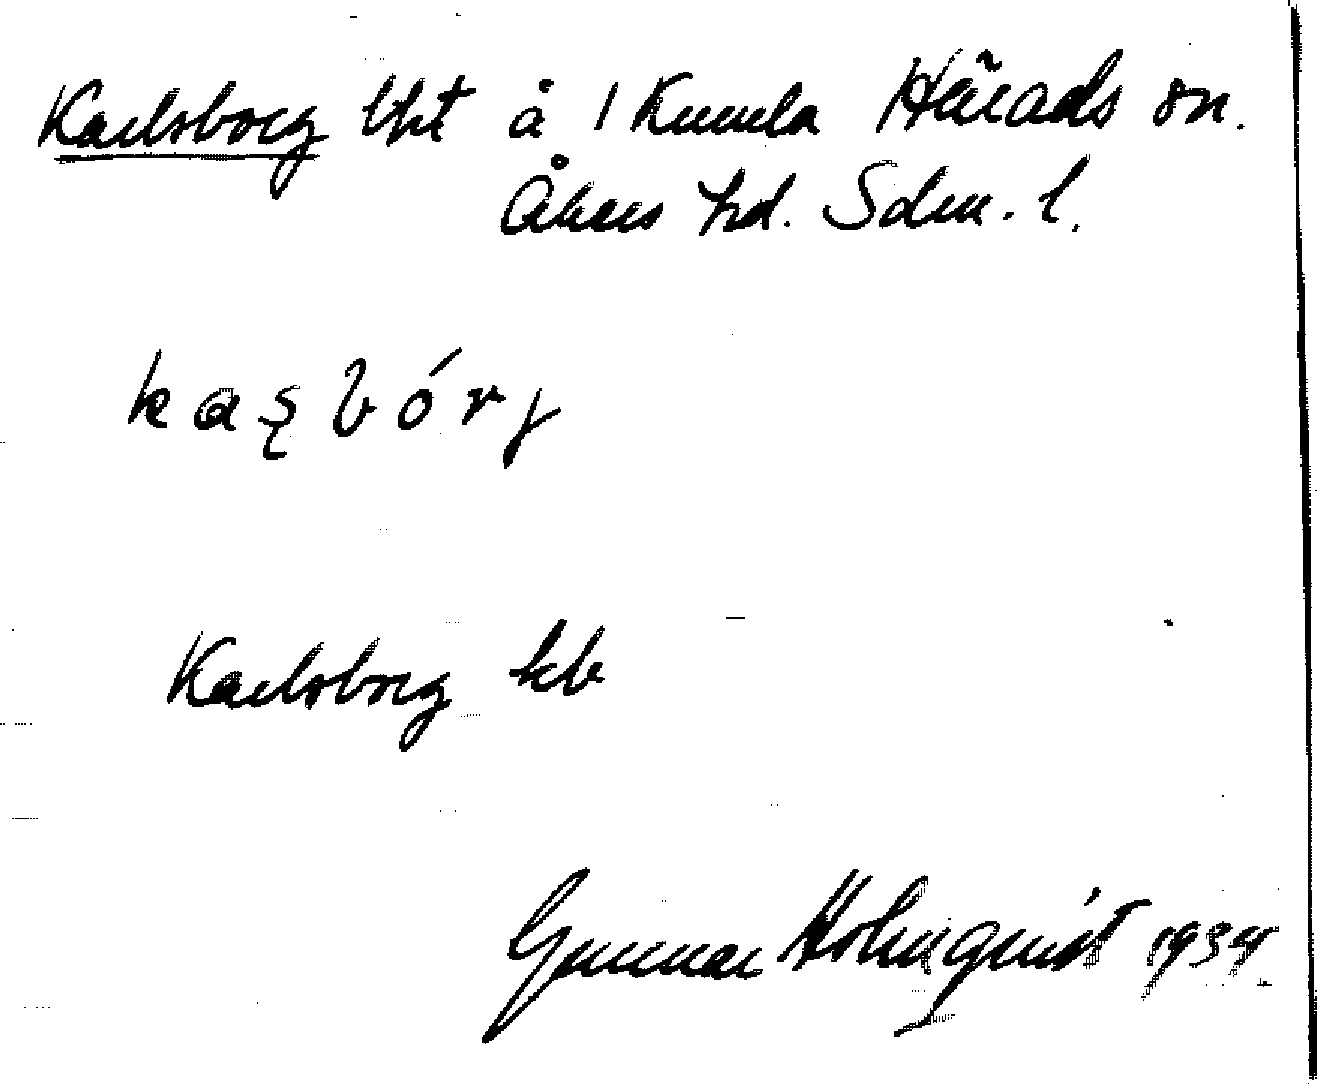 Karlsborg lht å 1 Kumla Härads sn.
Åkers hd. Sdm. l.
kaʂbórj
Karlsborg kb
Gunnar Holmquist 1934